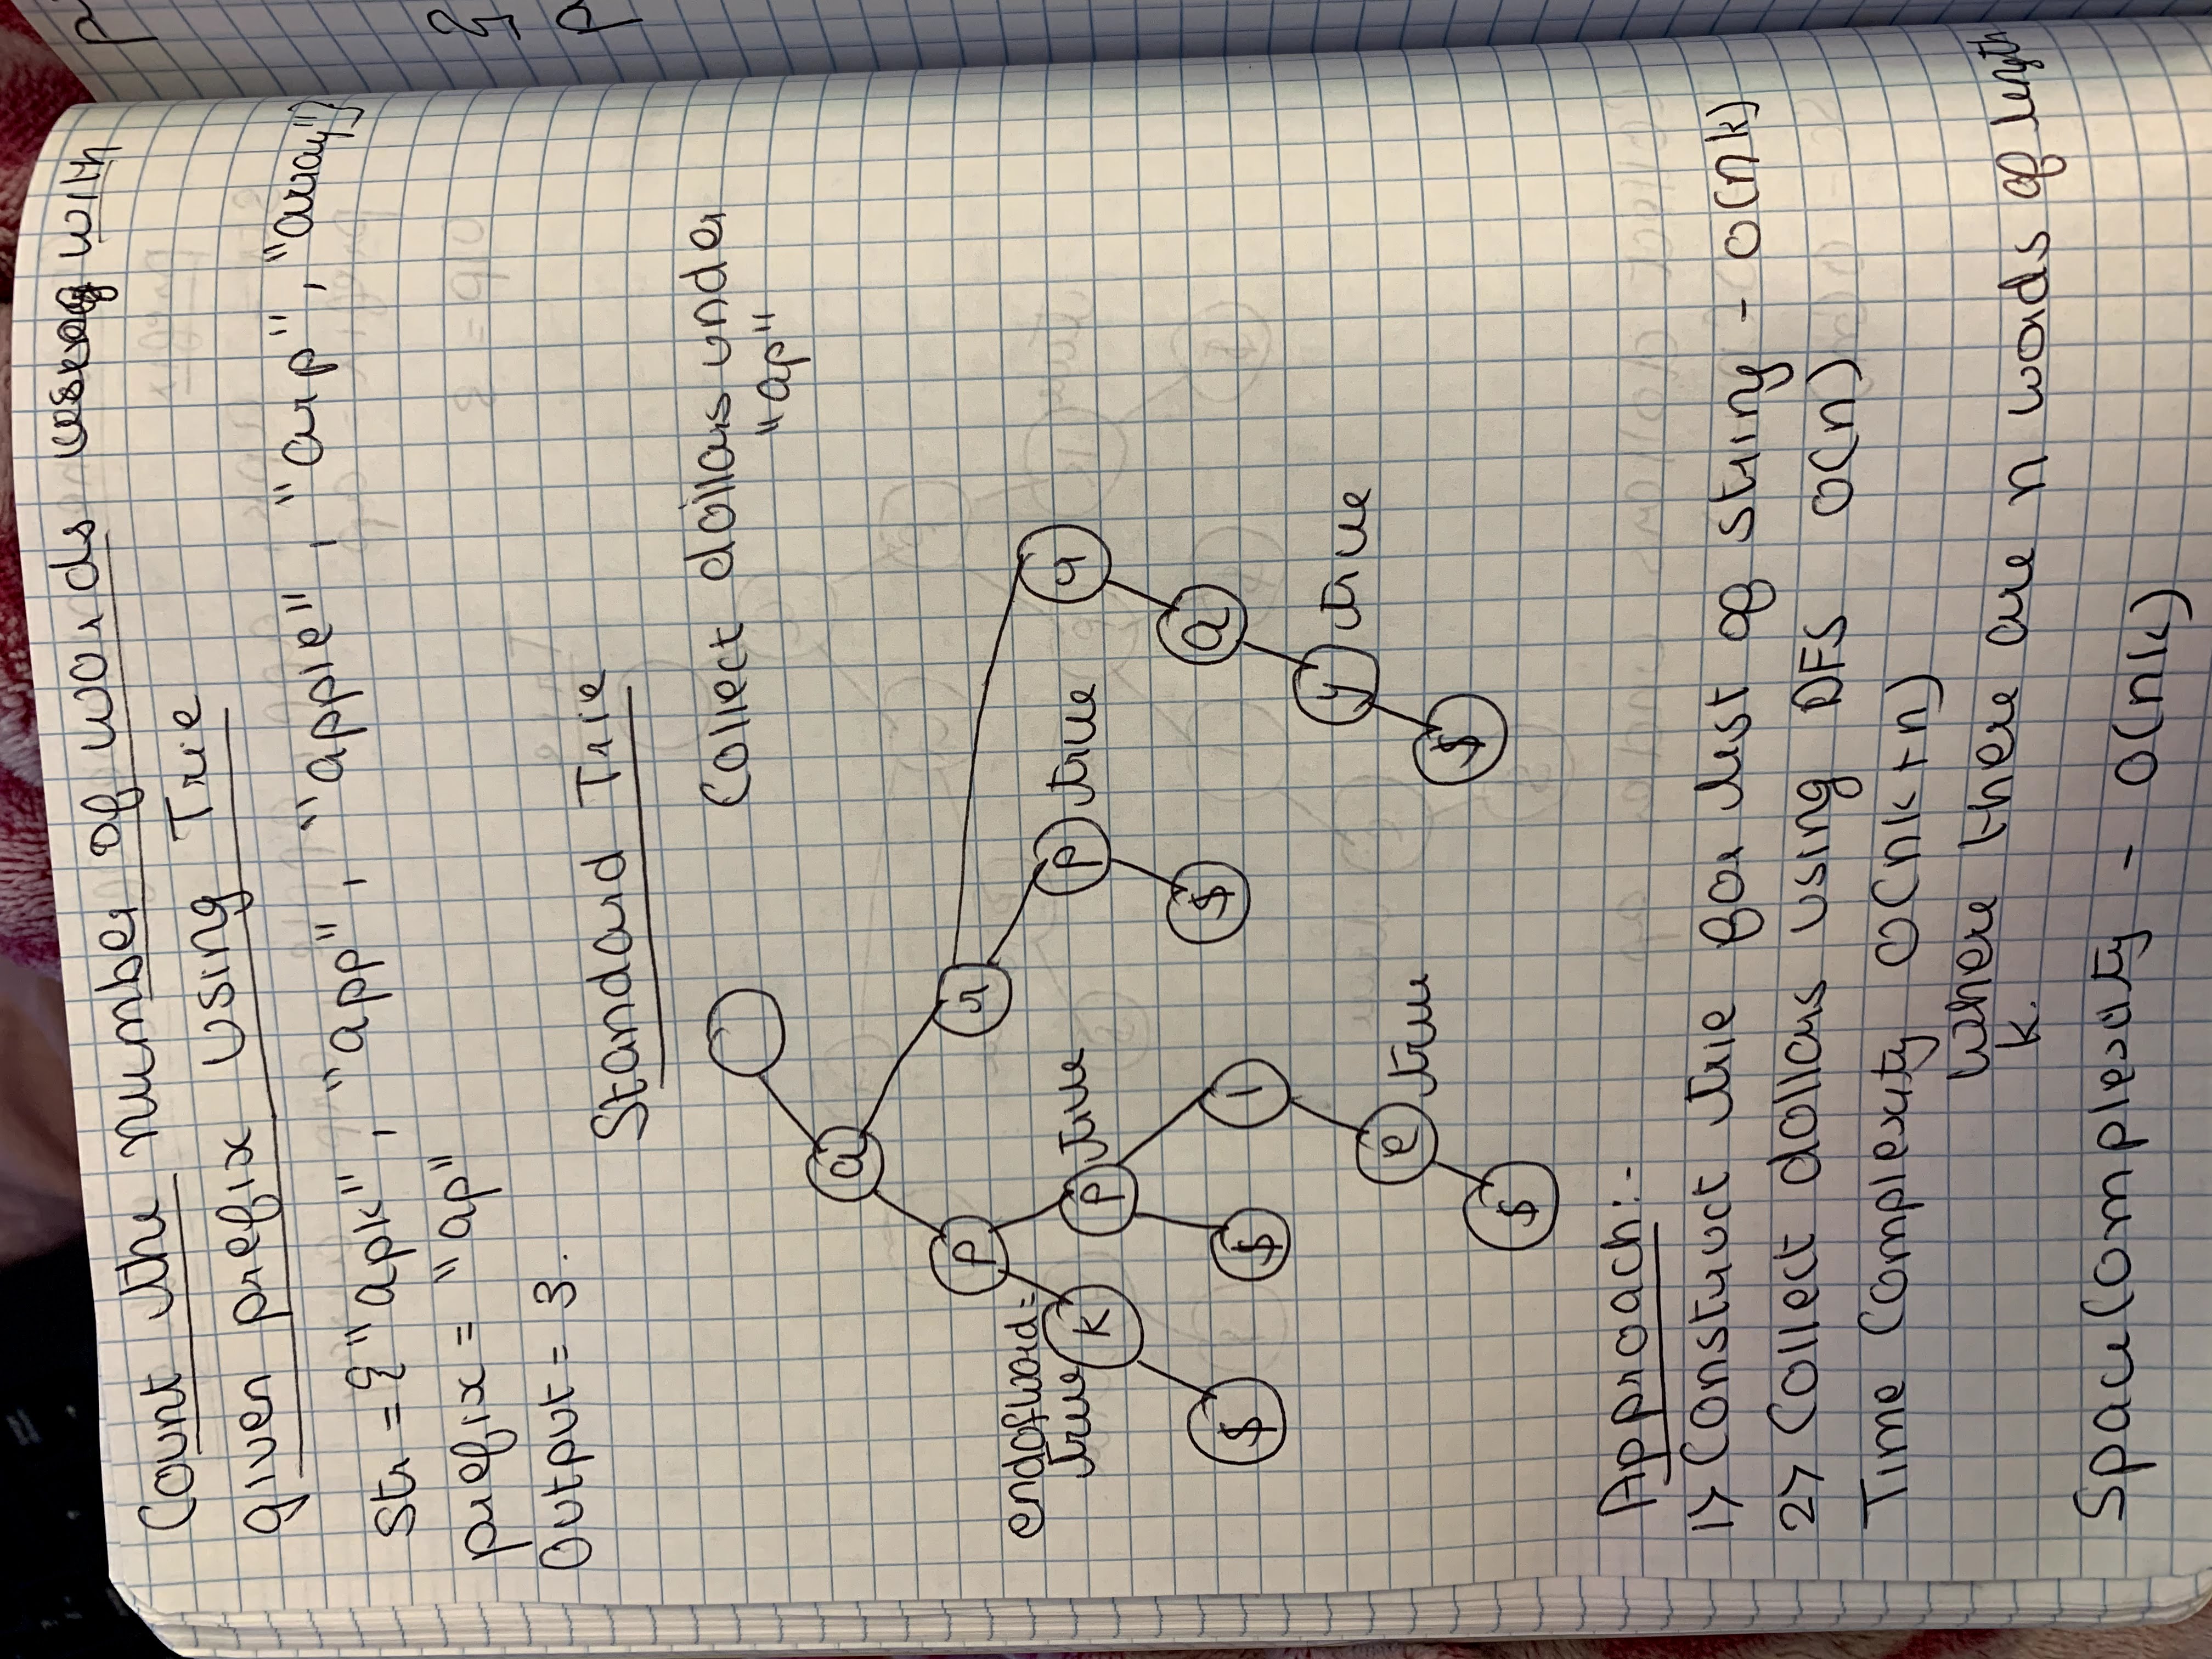 Count the number of words with
given prefix using Trie
Str = {"apk", "app", "apple", "arp", "array"}
prefix = "ap"
Output = 3.
Standard Trie
Collect dollars under
"ap"
a
p r
endofword=
true k p true p true r
$ $ l $ a
y true
e true
$
$
Approach:-
1> Construct trie for list of string - O(nk)
2> Collect dollars using DFS O(n)
Time Complexity O(nk+n)
where there are n words of length
k.
Space Complexity - O(nk)